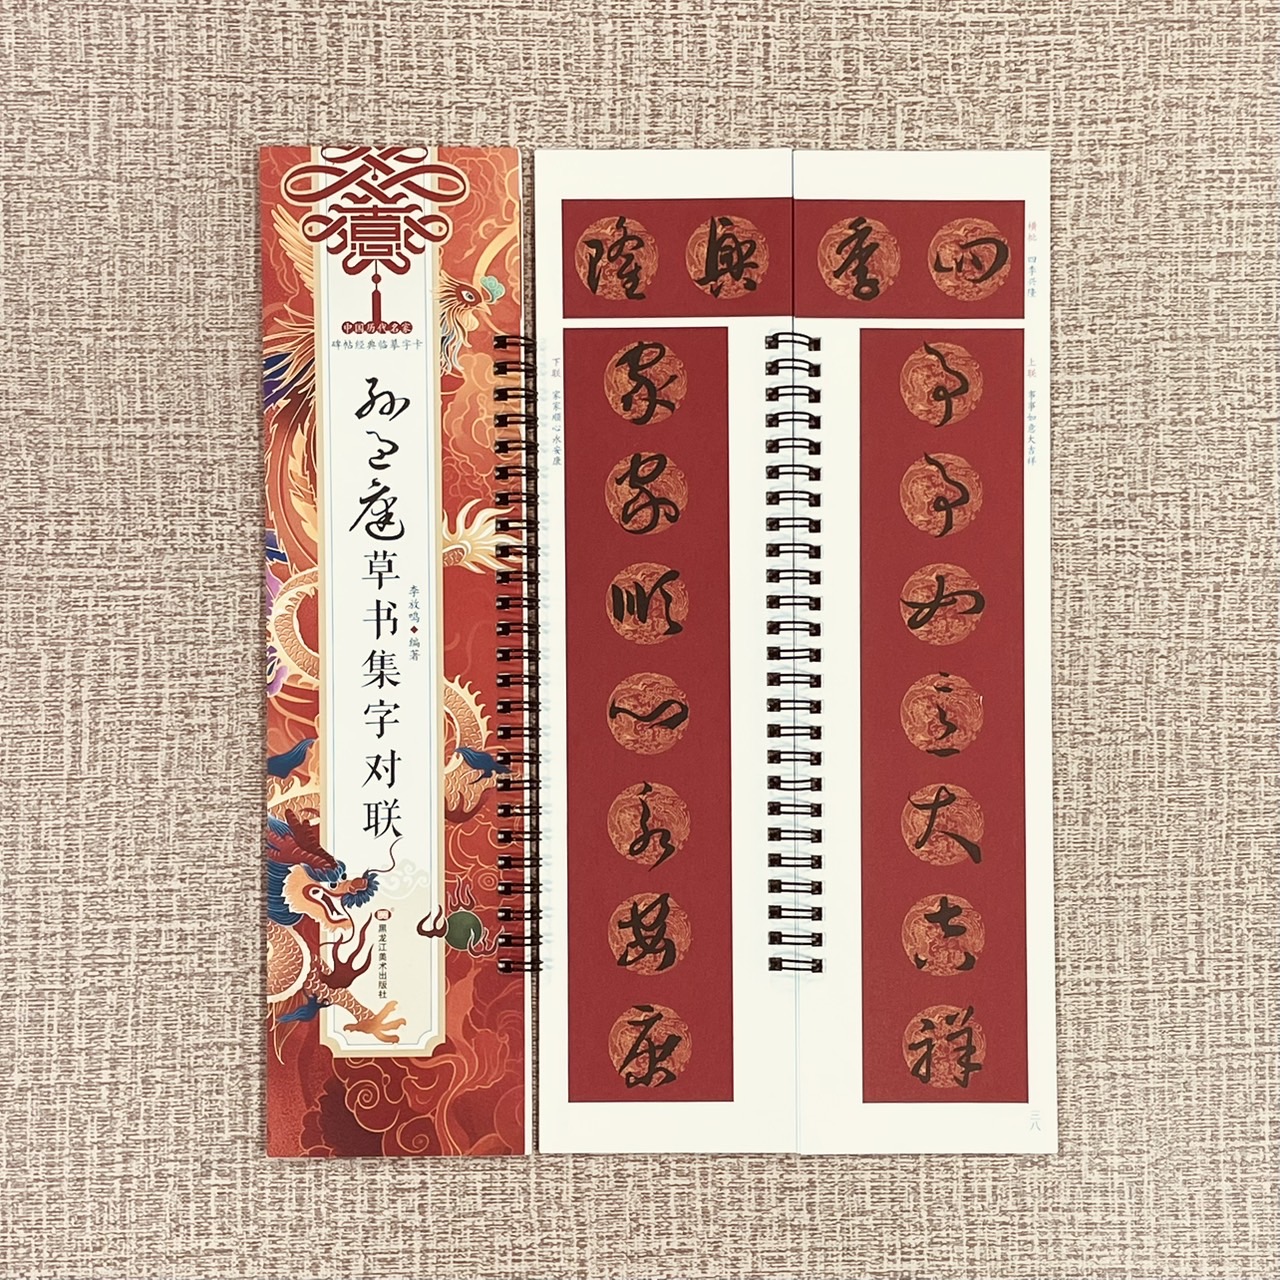 囍
中国历代名家
碑帖经典临摹字卡
孙过庭
草书集字对联
李放鸣◆编著
黑龙江美术出版社
横批 四季兴隆
四季興隆
上联 事事如意大吉祥
事事如意大吉祥
下联 家家顺心永安康
家家順心永安康
三八